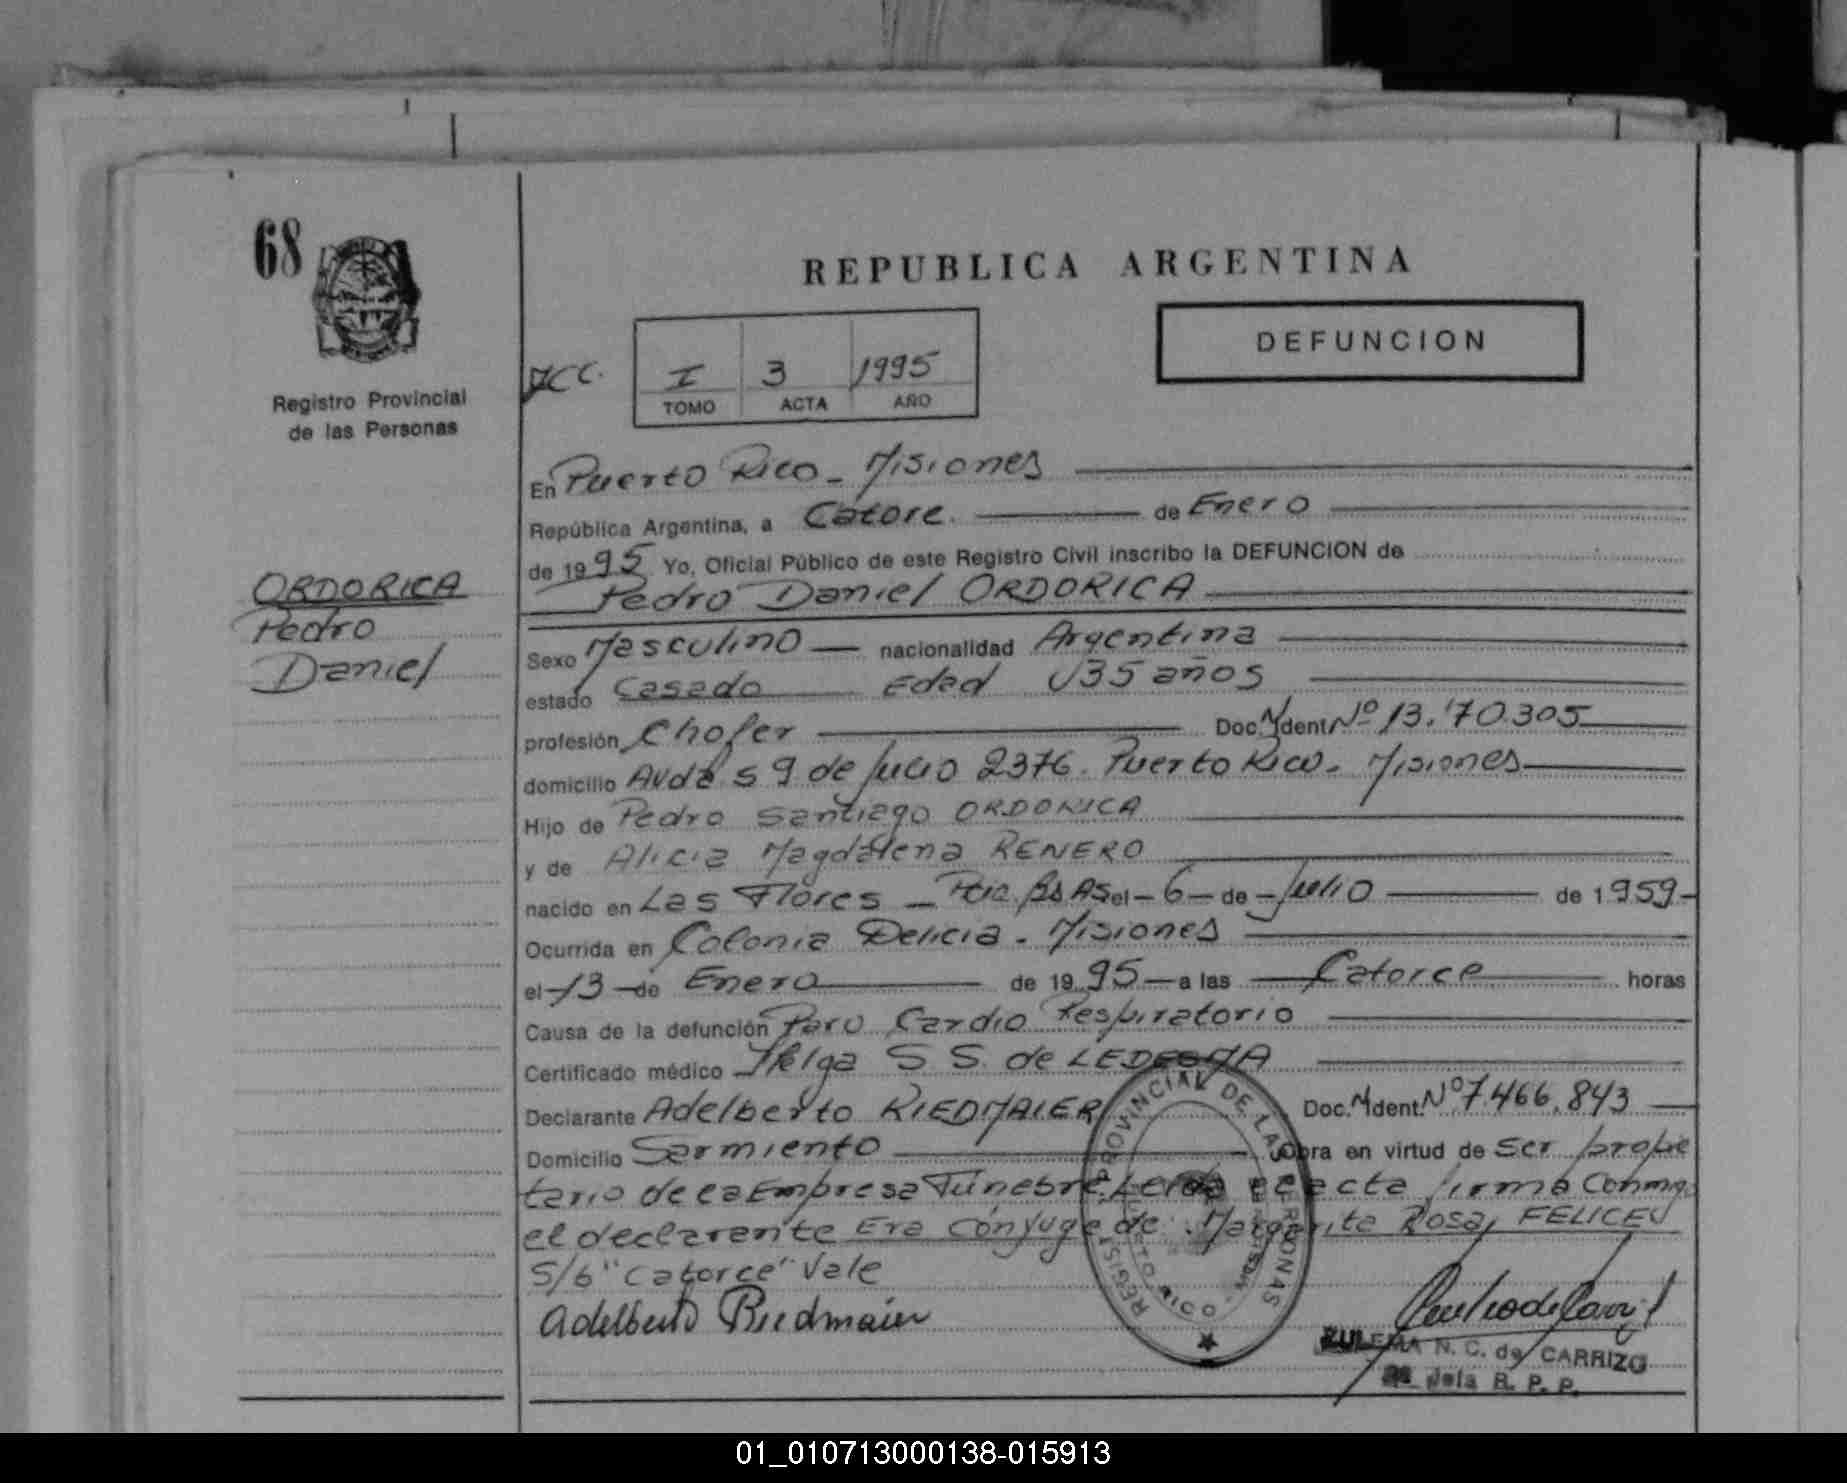 68
REPUBLICA ARGENTINA
DEFUNCION
I 3 1995
TOMO ACTA AÑO
Registro Provincial
de las Personas
ORDORICA
Pedro
Daniel
En Puerto Rico - Misiones
República Argentina, a Catorc. de Enero
de 1995 Yo, Oficial Público de este Registro Civil inscribo la DEFUNCION de
Pedro Daniel ORDORICA
Sexo Masculino nacionalidad Argentina
estado Casado Edad 35 años
profesión Chofer Doc. Ident. Nº
domicilio Avda 9 de Julio 2376. Puerto Rico - Misiones
Hijo de Pedro Santiago ORDORICA
y de Alicia Magdalena RENERO
nacido en Las Flores - Pcia. Bs As el - 6 - de - Julio de 1959-
Ocurrida en Colonia Delicia - Misiones
el 13 de Enero de 1995 a las Catorce horas
Causa de la defunción Paro Cardio Respiratorio
Certificado médico Helga S. S. de LEDESMA
Declarante Adelberto RIEDMAIER Doc. Ident. Nº 7.466.843
Domicilio Sarmiento Obra en virtud de ser propie
tario de la Empresa Fúnebre Leída el acta firma conmigo
el declarante Era cónyuge de Margarita Rosa FELICEV
S/b "Catorce" Vale
Adelberto Riedmaier
REGISTRO PROVINCIAL DE LAS PERSONAS
PUERTO RICO - MISIONES
ZULEMA N. C. de CARRIZO
Jefa R. P. P.
01_010713000138-015913